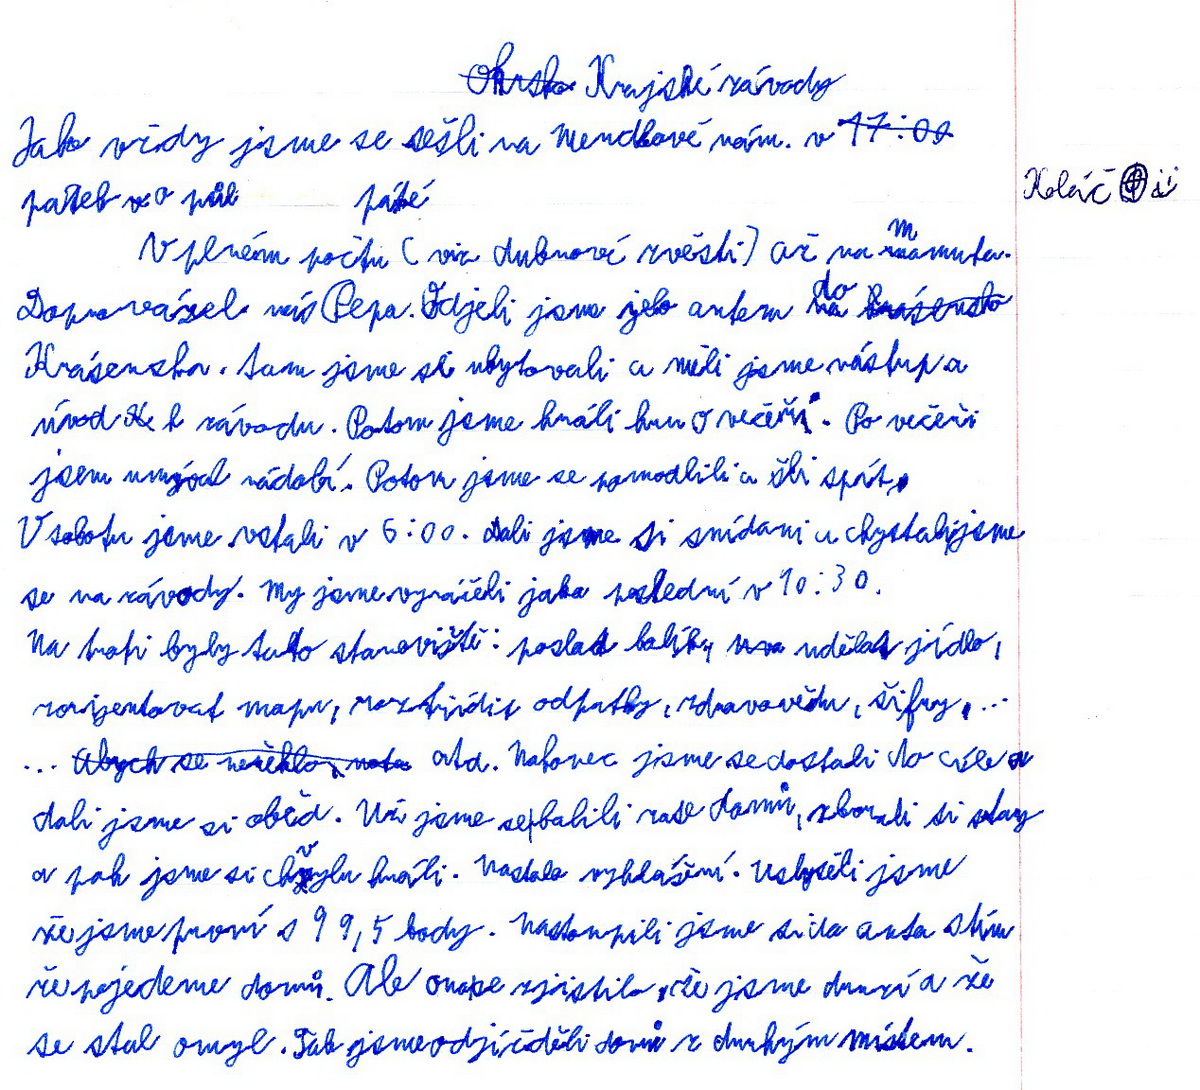 Krajské závody
Jako vždy jsme se sešli na Mendlově nám. v 17:00
pátek v o půl páté
V plném počtu (viz dubnové zvěsti) až na mamuta.
Doprovázel nás Pepa. Odjeli jsme jeho autem do
Krásenska. tam jsme se ubytovali a měli jsme nástup a
úvod k závodu. Potom jsme hráli hru o večeři. Po večeři
jsem umýval nádobí. Potom jsme se pomodlili a šli spát.
V sobotu jsme vstali v 6:00. Dali jsme si snídani a chystali jsme
se na závody. My jsme vyráželi jako poslední v 10:30.
Na trati byly tato stanoviště: poslat balíky, udělat jídlo,
zorijentovat mapu, roztřídit odpatky, zdravovědu, šifry, ...
... Abych se neřeklo, atd. Nakonec jsme se dostali do cíle a
dali jsme si oběd. Už jsme se balili zase domů, zbourali si stany
a pak jsme si chvylu hráli. Nastalo vyhlášení. Uslyšeli jsme
že jsme první s 99,5 body. Nastoupili jsme si do auta s tím
že pojedeme domů. Ale onase zjistilo, že jsme druzí a že
se stal omyl. Tak jsme odjížděli domů z druhým místem.
Koláč